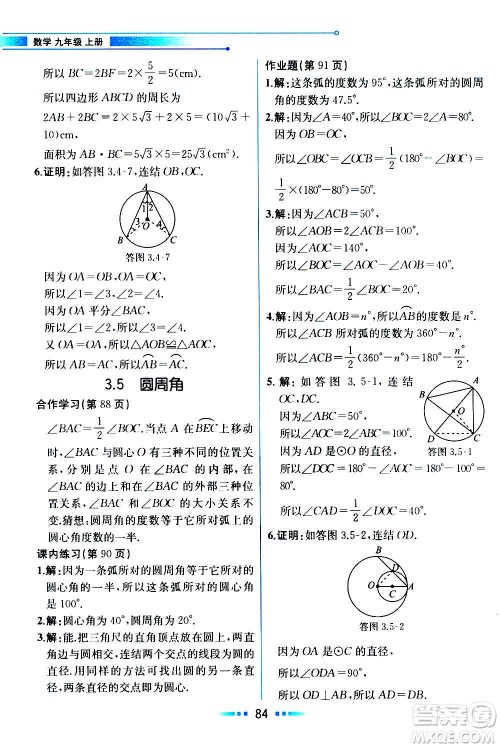 数学 九年级 上册
所以 BC=2BF=2×5/2=5(cm).
所以四边形 ABCD 的周长为
2AB+2BC=2×5√3+2×5=(10√3+
10)cm,
面积为 AB·BC=5√3×5=25√3(cm²).
6.证明:如答图 3.4-7,连结 OB,OC.
A
1 2
O
3 4
B C
答图 3.4-7
因为 OA=OB,OA=OC,
所以∠1=∠3,∠2=∠4.
因为 OA 平分∠BAC,
所以∠1=∠2,所以∠3=∠4.
又因为 OA=OA,所以△OAB≌△OAC,
所以 AB=AC,所以⌒AB=⌒AC.
3.5 圆周角
合作学习(第 88 页)
∠BAC=1/2∠BOC.当点 A 在⌒BEC上移动
时,∠BAC 与圆心 O 有三种不同的位置关
系,分别是圆心 O 在∠BAC 的内部,在
∠BAC 的边上和在∠BAC 的外部.以上的
关系不会随着∠BAC 和∠BOC 的大小而改
变.猜想:圆周角的度数等于它所对弧上的
圆心角度数的一半.
课内练习(第 90 页)
1.解:因为一条弧所对的圆周角等于它所对的
圆心角的一半,所以这条弧所对的圆心角是
100°.
2.解:圆心角为 40°,圆周角为 20°.
3.解:能.把三角尺的直角顶点放在圆周上,两
直角边与圆相交,连结两个交点的线段为圆
的直径.用同样的方法可以找到另一条直
径,两条直径的交点就是圆心.
作业题(第 91 页)
1.解:这条弧的度数为 95°,这条弧所对的圆周
角的度数为 47.5°.
2.解:因为∠A=40°,所以∠BOC=2∠A=80°.
所以∠ABC=1/2∠AOC=1/2(180°-∠BOC)=
1/2×(180°-80°)=50°.
3.解:因为∠ACB=50°,
所以∠AOB=2∠ACB=100°.
因为∠AOC=140°,
所以∠ABC=1/2∠AOC=70°,
所以∠BAC=180°-∠ACB-∠ABC=60°.
4.解:因为∠AOB=n°,所以⌒AB的度数是 n°,
所以∠ACB 所对弧的度数是 360°-n°.
所以∠ACB=1/2(360°-n°)=180°-n°/2.
5.解:如答图 3.5-1,连结
OC,DC.
因为∠ABC=50°,
所以∠ADC=50°.
因为 AD 是⊙O 的直径,
所以∠ACD=1/2∠AOD=
1/2×180°=90°.
所以∠CAD=40°.
A B
O
D C
答图 3.5-1
6.证明:如答图 3.5-2,连结 OD.
O A
答图 3.5-2
因为 OA 是⊙C 的直径,
所以∠ADO=1/2∠ACO=1/2×180°=90°,
84